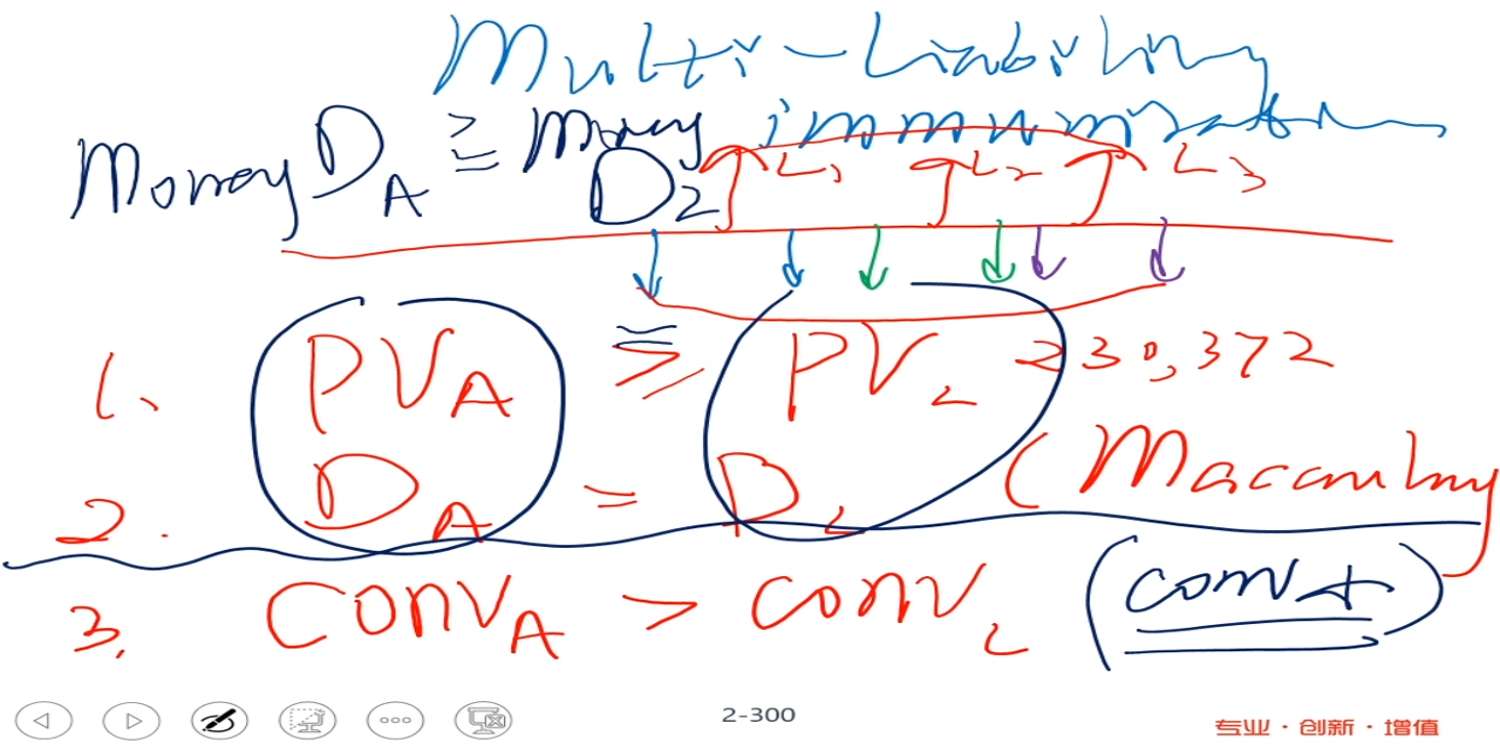 Multi-Liability
immunization
Money D_A ≥ money D_2
L_1 L_2 L_3
1. PV_A ≥ PV_L 230,372
2. D_A = D_L (Macaulay)
3. CONV_A > CONV_L (conv↓)
2-300
专业·创新·增值